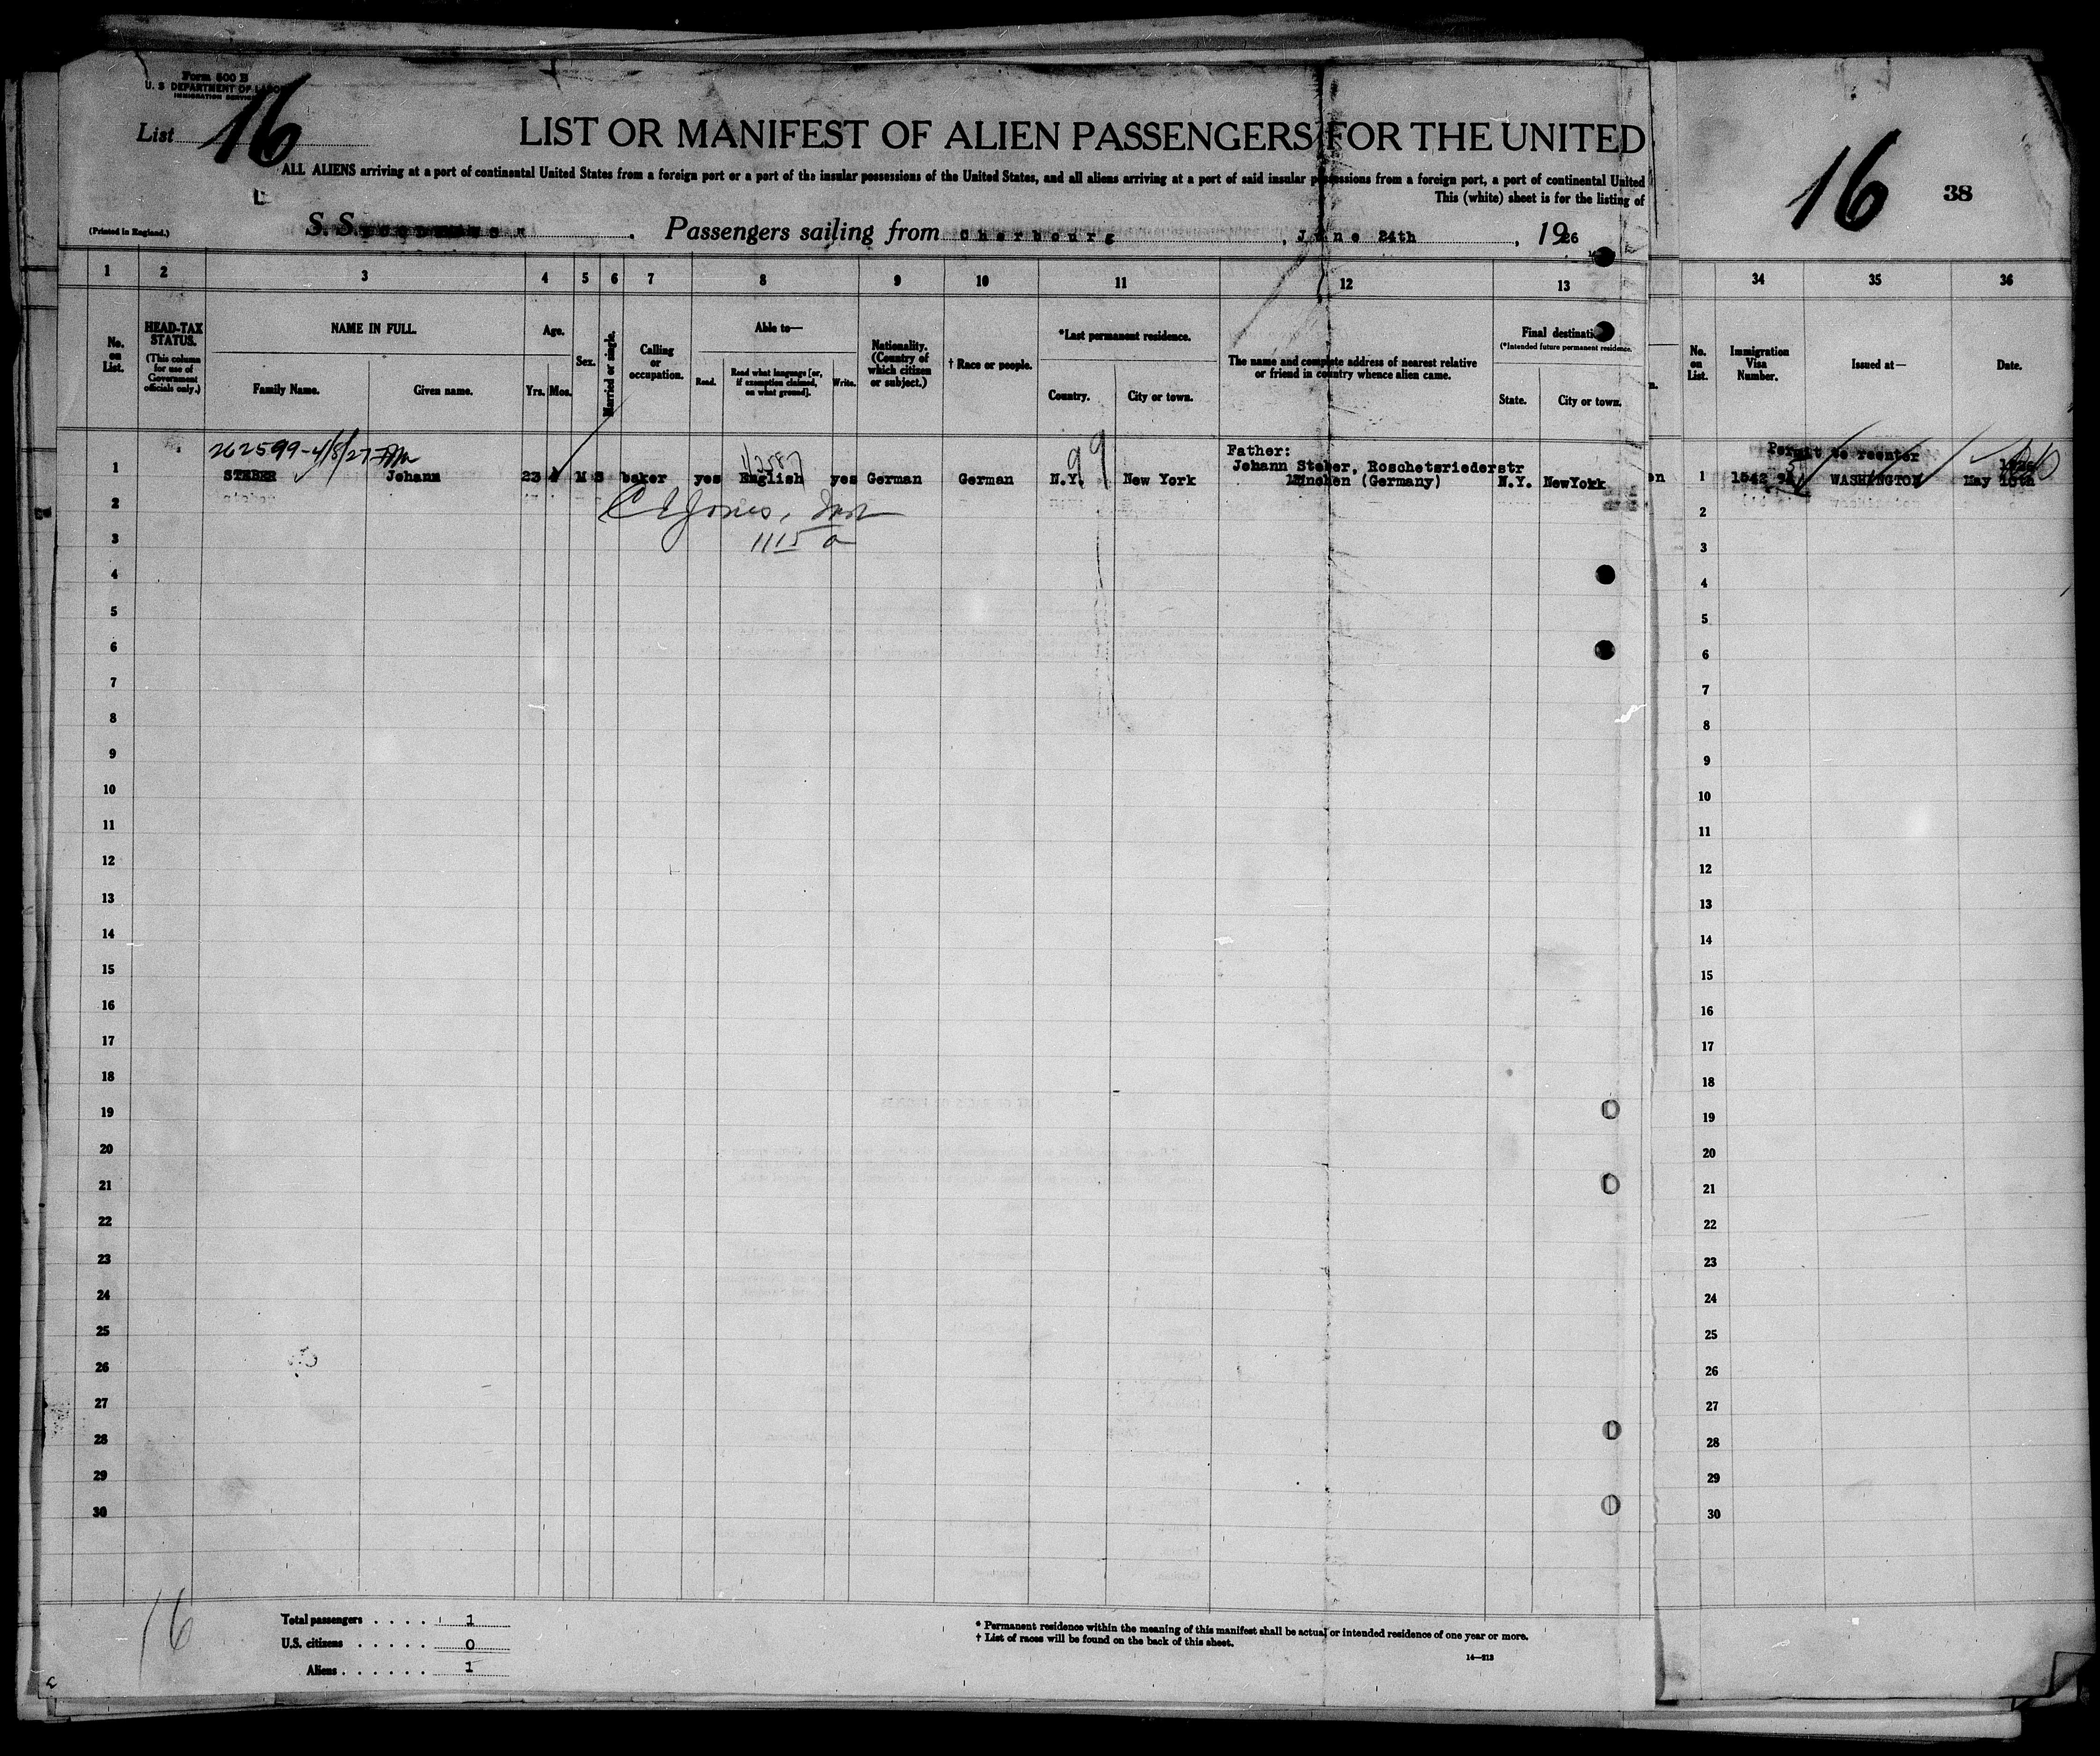 Form 500 B
U. S DEPARTMENT OF LABOR
IMMIGRATION SERVICE
List 16
LIST OR MANIFEST OF ALIEN PASSENGERS FOR THE UNITED
ALL ALIENS arriving at a port of continental United States from a foreign port or a port of the insular possessions of the United States, and all aliens arriving at a port of said insular possessions from a foreign port, a port of continental United
This (white) sheet is for the listing of
16
38
(Printed in England.)
S. S. Passengers sailing from Cherbourg, June 24th, 1926
1 2 3 4 5 6 7 8 9 10 11 12 13
34 35 36
No. on List.
HEAD-TAX STATUS.
(This column for use of Government officials only.)
NAME IN FULL.
Family Name.
Given name.
Age.
Yrs. Mos.
Sex.
Married or single.
Calling or occupation.
Able to—
Read.
Read what language [or, if exemption claimed, on what ground].
Write.
Nationality. (Country of which citizen or subject.)
† Race or people.
*Last permanent residence.
Country.
City or town.
The name and complete address of nearest relative or friend in country whence alien came.
Final destination
(*Intended future permanent residence.
State.
City or town.
No. on List.
Immigration Visa Number.
Issued at—
Date.
262599-4/8/27
1 STEBER Johann 23 M S baker yes English yes German German N.Y. New York
99
Father:
Johann Steber, Roschetsriederstr
München (Germany)
N.Y. NewYork
Permit to reenter
1 1542 WASHINGTON May 18th
C E Jones, Insp
1115 a
2
3
4
5
6
7
8
9
10
11
12
13
14
15
16
17
18
19
20
21
22
23
24
25
26
27
28
29
30
2
3
4
5
6
7
8
9
10
11
12
13
14
15
16
17
18
19
20
21
22
23
24
25
26
27
28
29
30
16
Total passengers . . . . 1
U.S. citizens . . . . . 0
Aliens . . . . . . 1
* Permanent residence within the meaning of this manifest shall be actual or intended residence of one year or more.
† List of races will be found on the back of this sheet.
14—213